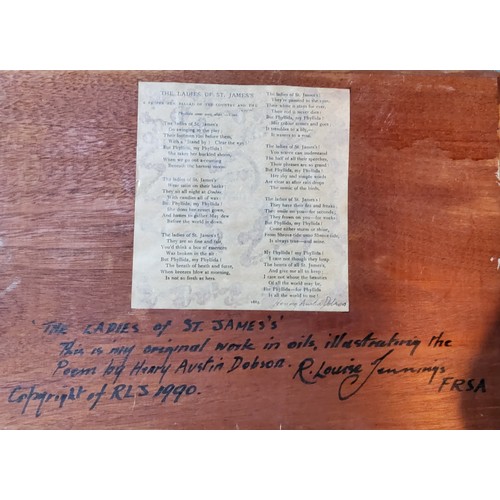 THE LADIES OF ST. JAMES'S
A PROPER NEW BALLAD OF THE COUNTRY AND THE
The ladies of St. James's
Go swinging to the play;
Their footmen run before them,
With a "Stand by! Clear the way!"
But Phyllida, my Phyllida!
She takes her buckled shoon,
When we go out a-courting
Beneath the harvest moon.
The ladies of St. James's
Wear satin on their backs;
They sit all night at Ombre,
With candles all of wax:
But Phyllida, my Phyllida!
She dons her russet gown,
And hastes to gather May dew
Before the world is down.
The ladies of St. James's
They are so fine and fair,
You'd think a box of essences
Was broken in the air:
But Phyllida, my Phyllida!
The breath of heath and furze,
When breezes blow at morning,
Is not so fresh as hers.
The ladies of St. James's
They're painted to the eyes;
Their white it stays for ever,
Their red it never dies:
But Phyllida, my Phyllida!
Her colour comes and goes;
It trembles to a lily,—
It wavers to a rose.
The ladies of St. James's
You scarce can understand
The half of all their speeches,
Their phrases are so grand:
But Phyllida, my Phyllida!
Her shy and simple words
Are clear as after rain-drops
The music of the birds.
The ladies of St. James's
They have their fits and freaks;
They smile on you—for seconds,
They frown on you—for weeks:
But Phyllida, my Phyllida!
Come either storm or shine,
From Shrove-tide unto Shrove-tide,
Is always true—and mine.
My Phyllida! my Phyllida!
I care not though they heap
The hearts of all St. James's,
And give me all to keep;
I care not whose the beauties
Of all the world may be,
For Phyllida—for Phyllida
Is all the world to me!
THE LADIES of ST. JAMES'S'
This is my original work in oils, illustrating the
Poem by Henry Austin Dobson. R. Louise Jennings
FRSA
Copyright of RLJ 1990.